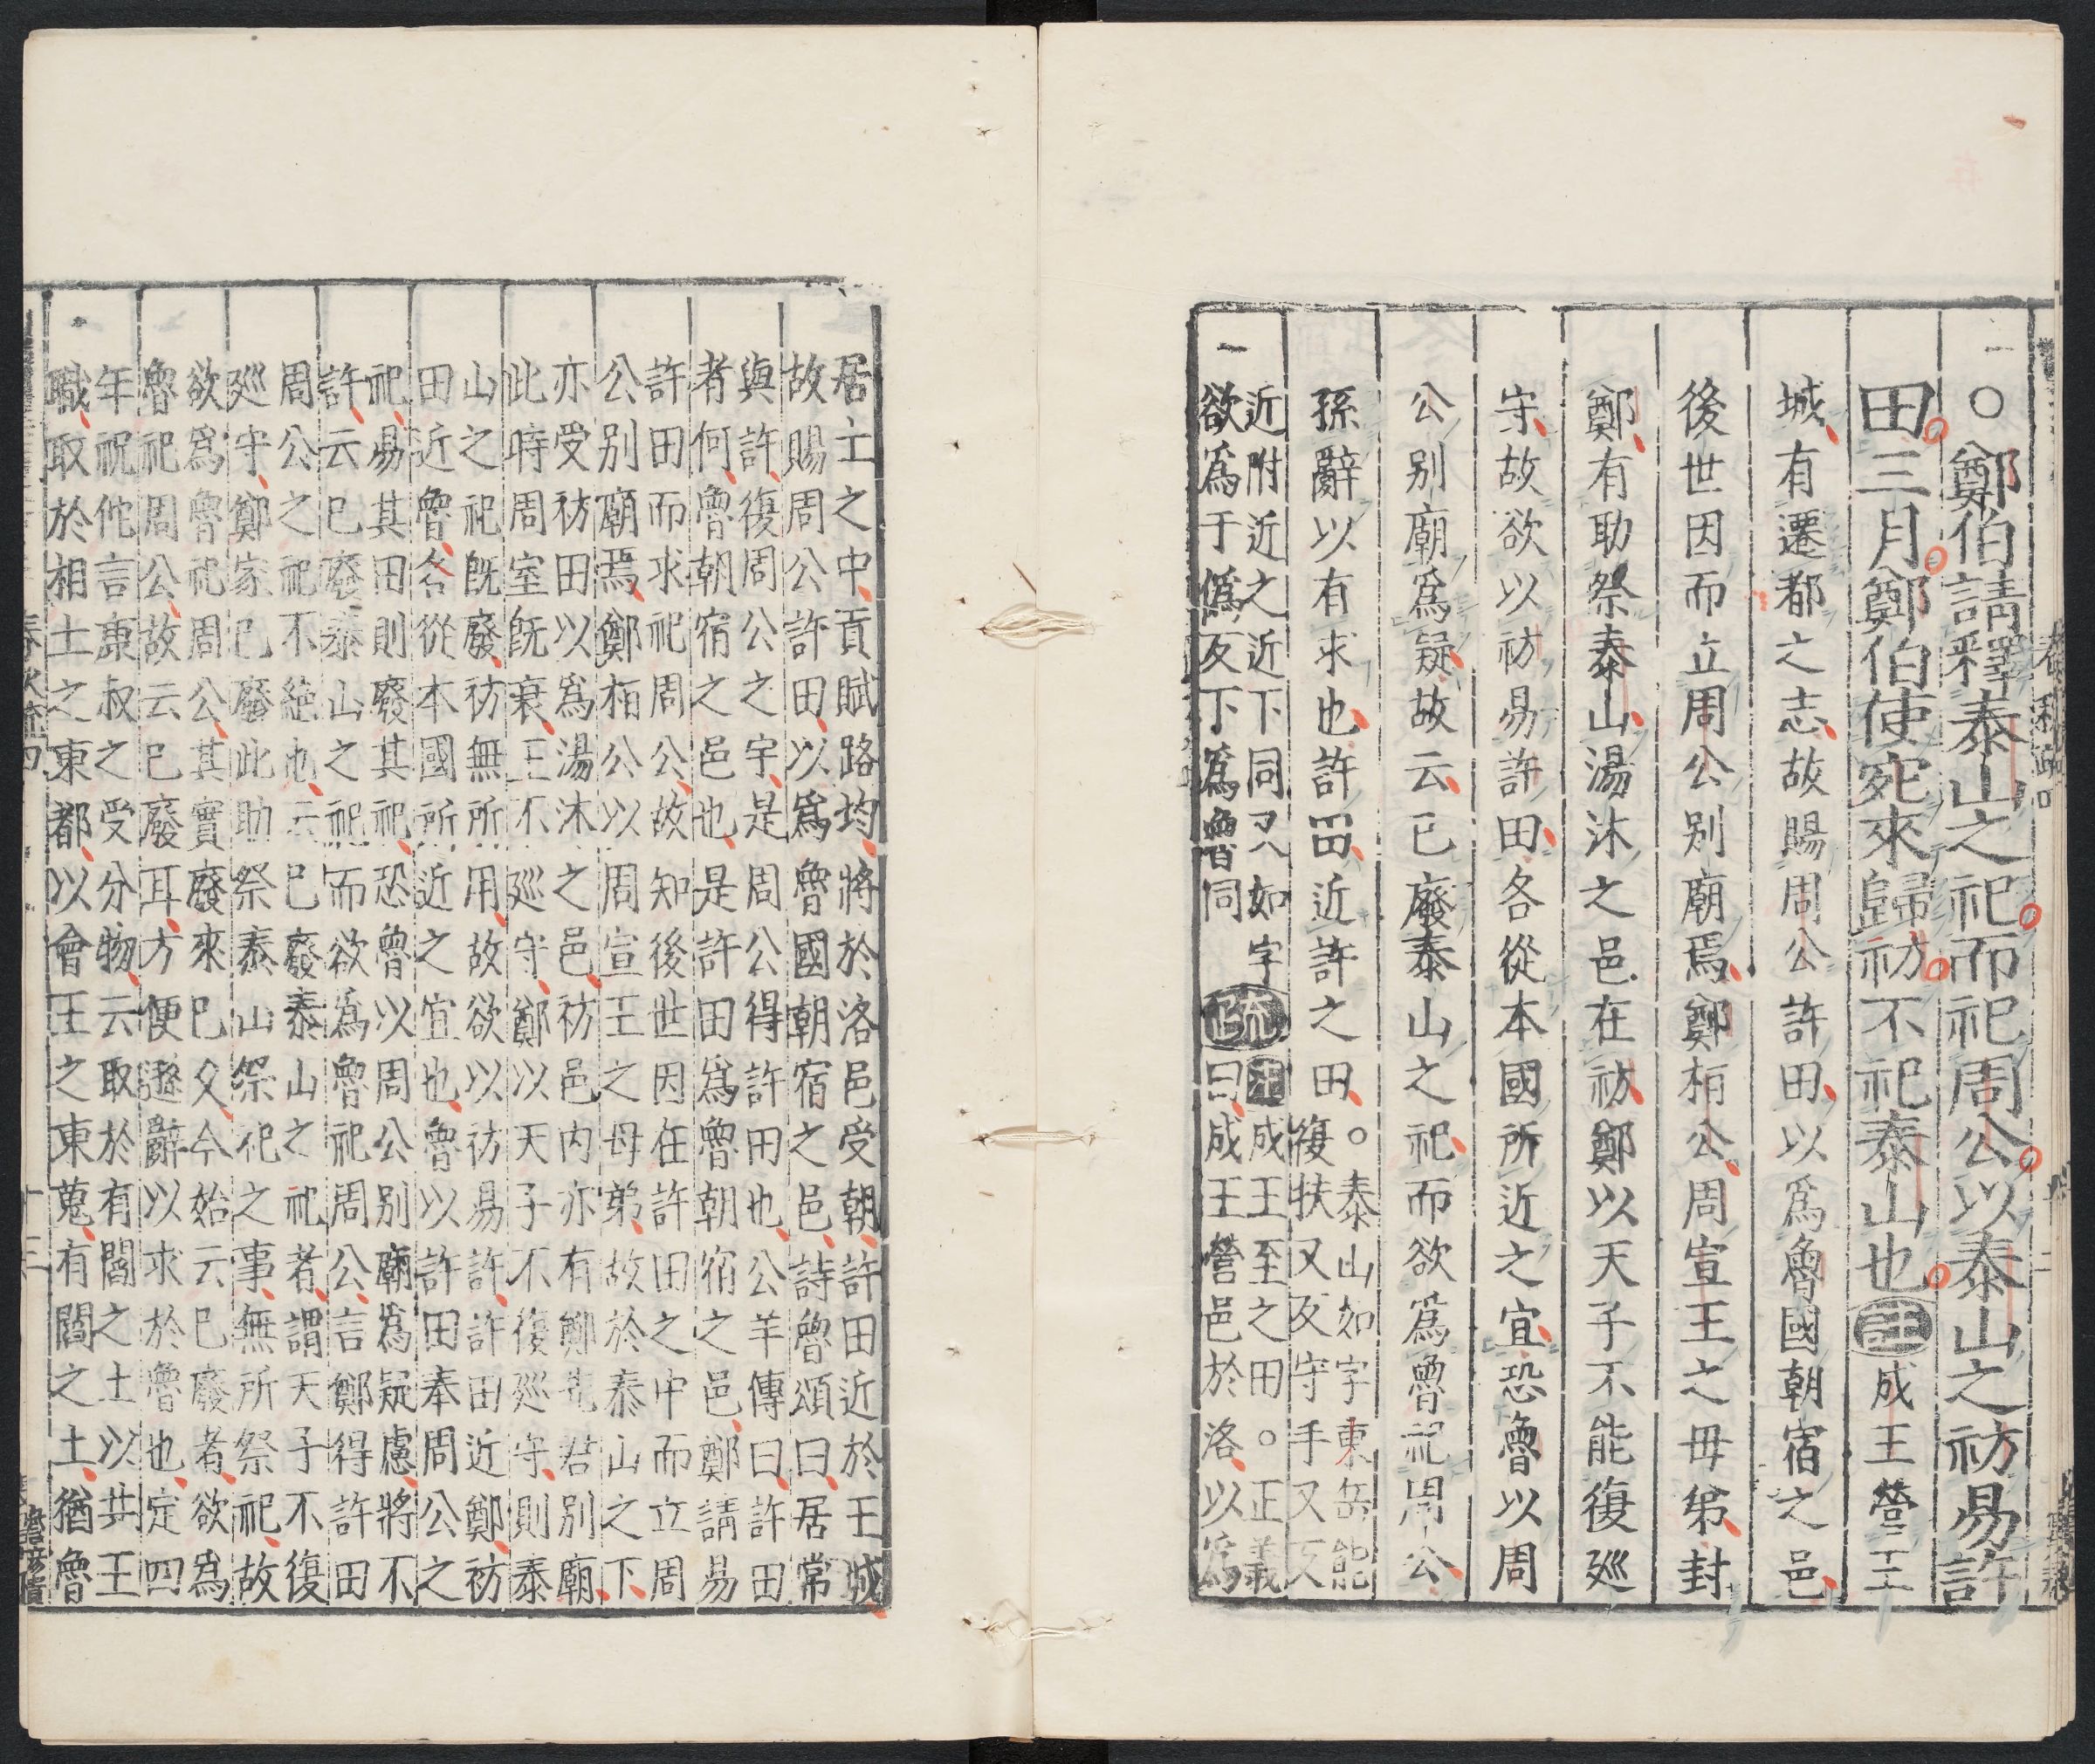 ○鄭伯請釋泰山之祀而祀周公以泰山之祊易許
田三月鄭伯使宛來歸祊不祀泰山也註成王營王
城有遷都之志故賜周公許田以爲魯國朝宿之邑
後世因而立周公别廟焉鄭桓公周宣王之母弟封
鄭有助祭泰山湯沐之邑在祊鄭以天子不能復廵
守故欲以祊易許田各從本國所近之宜恐魯以周
公别廟爲疑故云已廢泰山之祀而欲爲魯祀周公
孫辭以有求也許田近許之田
○泰山如字東岳能
復扶又反守手又反
近附近之近下同又如字
欲爲于僞反下爲魯同
疏
注成王至之田○正義
曰成王營邑於洛以爲
居土之中貢賦路均將於洛邑受朝許田近於王城
故賜周公許田以爲魯國朝宿之邑詩魯頌曰居常
與許復周公之宇是周公得許田也公羊傳曰許田
者何魯朝宿之邑也是許田爲魯朝宿之邑鄭請易
許田而求祀周公故知後世因在許田之中而立周
公别廟焉鄭桓公以周宣王之母弟故於泰山之下
亦受祊田以爲湯沐之邑祊邑内亦有鄭先君别廟
此時周室旣衰王不廵守鄭以天子不復廵守則泰
山之祀旣廢祊無所用故欲以祊易許許田近鄭祊
田近魯各從本國所近之宜也魯以許田奉周公之
祀易其田則廢其祀恐魯以周公别廟爲疑慮將不
許云已廢泰山之祀而欲爲魯祀周公言鄭得許田
周公之祀不絶也云已廢泰山之祀者謂天子不復
廵守鄭家已廢此助祭泰山祭祀之事無所祭祀故
欲爲魯祀周公其實廢來已久今始云已廢者欲爲
魯祀周公故云已廢耳方便遜辭以求於魯也定四
年祝佗言康叔之受分物云取於有閻之土以共王
職取於相土之東都以會王之東蒐有閻之土猶魯